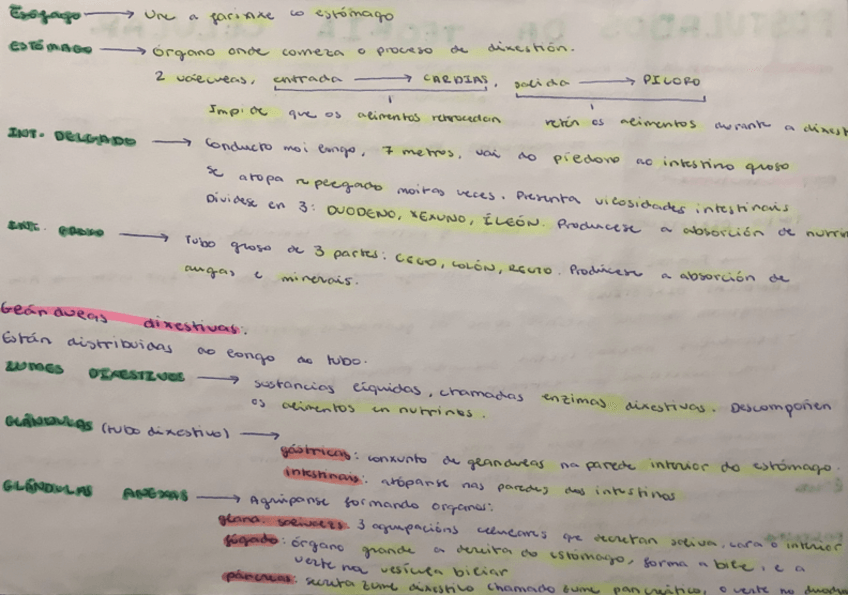 Esófago → Une a farinxe co estómago
ESTÓMAGO → órgano onde comeza o proceso de dixestión.
2 válvulas, entrada → CARDIAS, salida → PILORO
Impide que os alimentos retrocedan retén os alimentos durante a dixest
INT. DELGADO → Conducto moi longo, 7 metros, vai do píloro ao intestino groso
se atopa repregado moitas veces. Presenta vilosidades intestinais
Divídese en 3: DUODENO, XEXUNO, ÍLEÓN. Prodúcese a absorción de nutrin
INT. GROSO → Tubo groso de 3 partes: CEGO, COLÓN, RECTO. Prodúcese a absorción de
augas e minerais.
Glándulas dixestivas:
Están distribuidas ao longo do tubo.
ZUMES DIXESTIVOS → sustancias líquidas, chamadas enzimas dixestivas. Descompoñen
os alimentos en nutrintes.
GLÁNDULAS (tubo dixestivo) →
gástricas: conxunto de glándulas na parede interior do estómago.
intestinais: atópanse nas paredes dos intestinos
GLÁNDULAS ANEXAS → Agrúpanse formando organos:
gland. salivares: 3 agrupacións celulares que secretan saliva, cara o interior
fígado: órgano grande a dereita do estómago, forma a bile, e a
verte na vesícula biliar
páncreas: secreta zume dixestivo chamado zume pancreático, o verte no duode